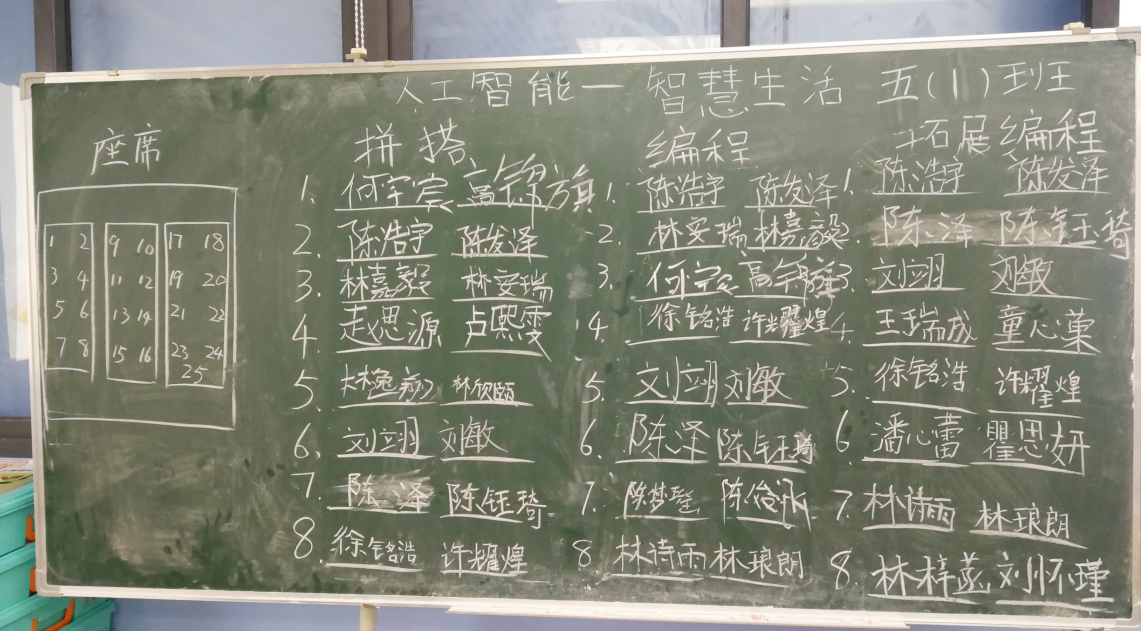 人工智能—智慧生活 五(1)班
座席
1 2 9 10 17 18
3 4 11 12 19 20
5 6 13 14 21 22
7 8 15 16 23 24
25
拼搭
1. 何宇宸 高铭旗
2. 陈浩宇 陈发泽
3. 林嘉毅 林安瑞
4. 赵思源 卢熙雯
5. 林逸翔 林欣颐
6. 刘翊 刘敏
7. 陈泽 陈钰琦
8. 徐铭浩 许耀煌
编程
1. 陈浩宇 陈发泽
2. 林安瑞 林嘉毅
3. 何宇宸
4. 徐铭浩 许耀煌
5. 刘翊 刘敏
6. 陈泽 陈钰琦
7. 陈梦瑶 陈俊
8 林诗雨 林琅朗
拓展编程
1. 陈浩宇 陈发泽
2. 陈泽 陈钰琦
3. 刘翊 刘敏
4. 王瑞成 童心菓
5. 徐铭浩 许耀煌
6 潘心蕾 瞿思妍
7. 林诗雨 林琅朗
8. 林梓菡 刘怀瑾